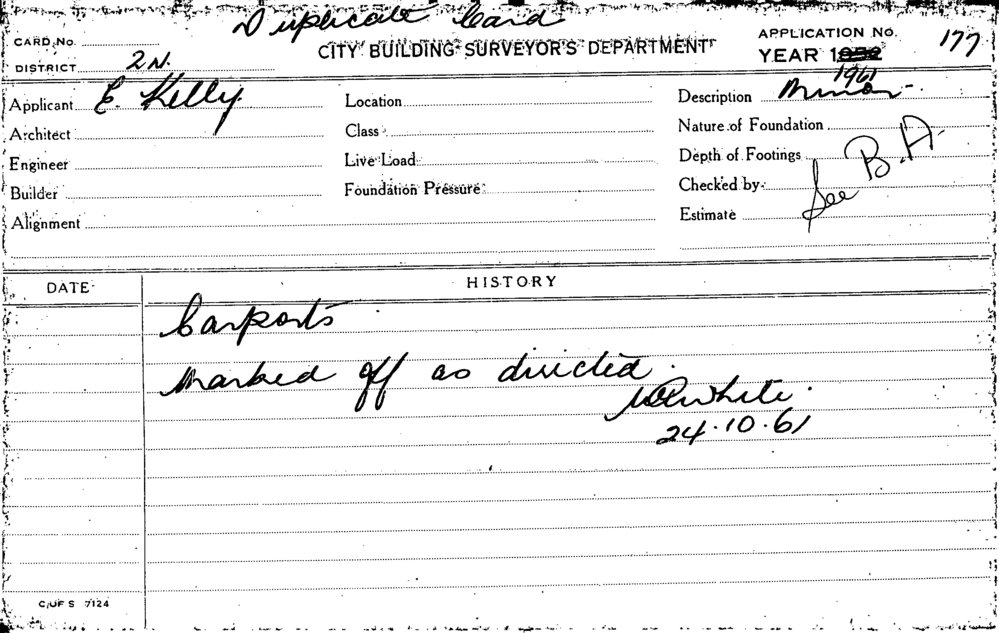 Duplicate Card
CARD No.
CITY BUILDING SURVEYOR'S DEPARTMENT
APPLICATION No. 177
DISTRICT 2N.
YEAR 1952
1961
Applicant E. Kelly
Location
Description Minor
Architect
Class
Nature of Foundation
Engineer
Live Load
Depth of Footings
Builder
Foundation Pressure
Checked by
See B.A.
Alignment
Estimate
DATE
HISTORY
Carports
Marked off as directed.
White
24.10.61
C. OF S 7124